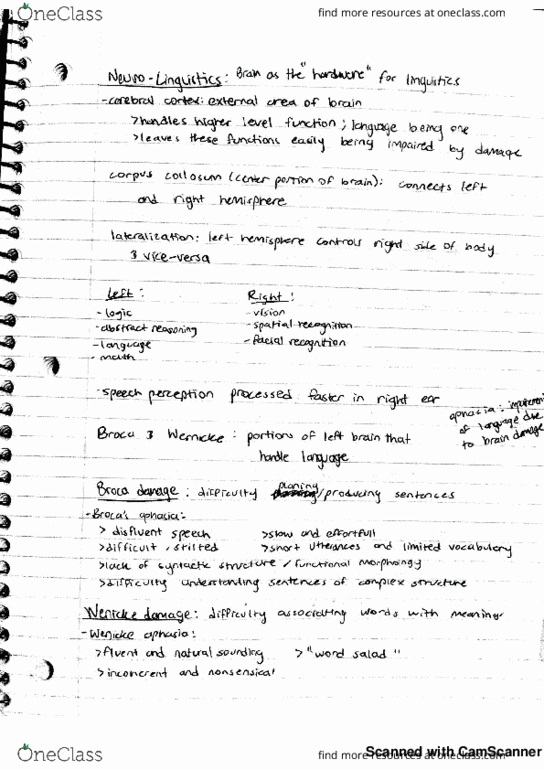 OneClass
find more resources at oneclass.com
Neuro-Linguistics: Brain as the "hardware" for linguistics
-cerebral cortex: external area of brain
>handles higher level function; language being one
>leaves these functions easily being impaired by damage
corpus collosum (center portion of brain): connects left
and right hemisphere
lateralization: left hemisphere controls right side of body
& vice-versa
Left:
- logic
-abstract reasoning
-language
- math
Right:
- vision
- spatial recognition
- facial recognition
-speech perception processed faster in right ear
aphasia: impairment
of language due
to brain damage
Broca & Wernicke: portions of left brain that
handle language
Broca damage: difficulty planing/producing sentences
-Broca's aphasia:
> disfluent speech >slow and effortfull
>difficult, stilted >short utterances and limited vocabulary
>lack of syntactic structure / functional morphology
>difficulty understanding sentences of complex structure
Wernicke damage: difficulty associating words with meaning
-Wernicke aphasia:
>fluent and natural sounding >"word salad"
>incoherent and nonsensical
OneClass
find more resources at oneclass.com
Scanned with CamScanner